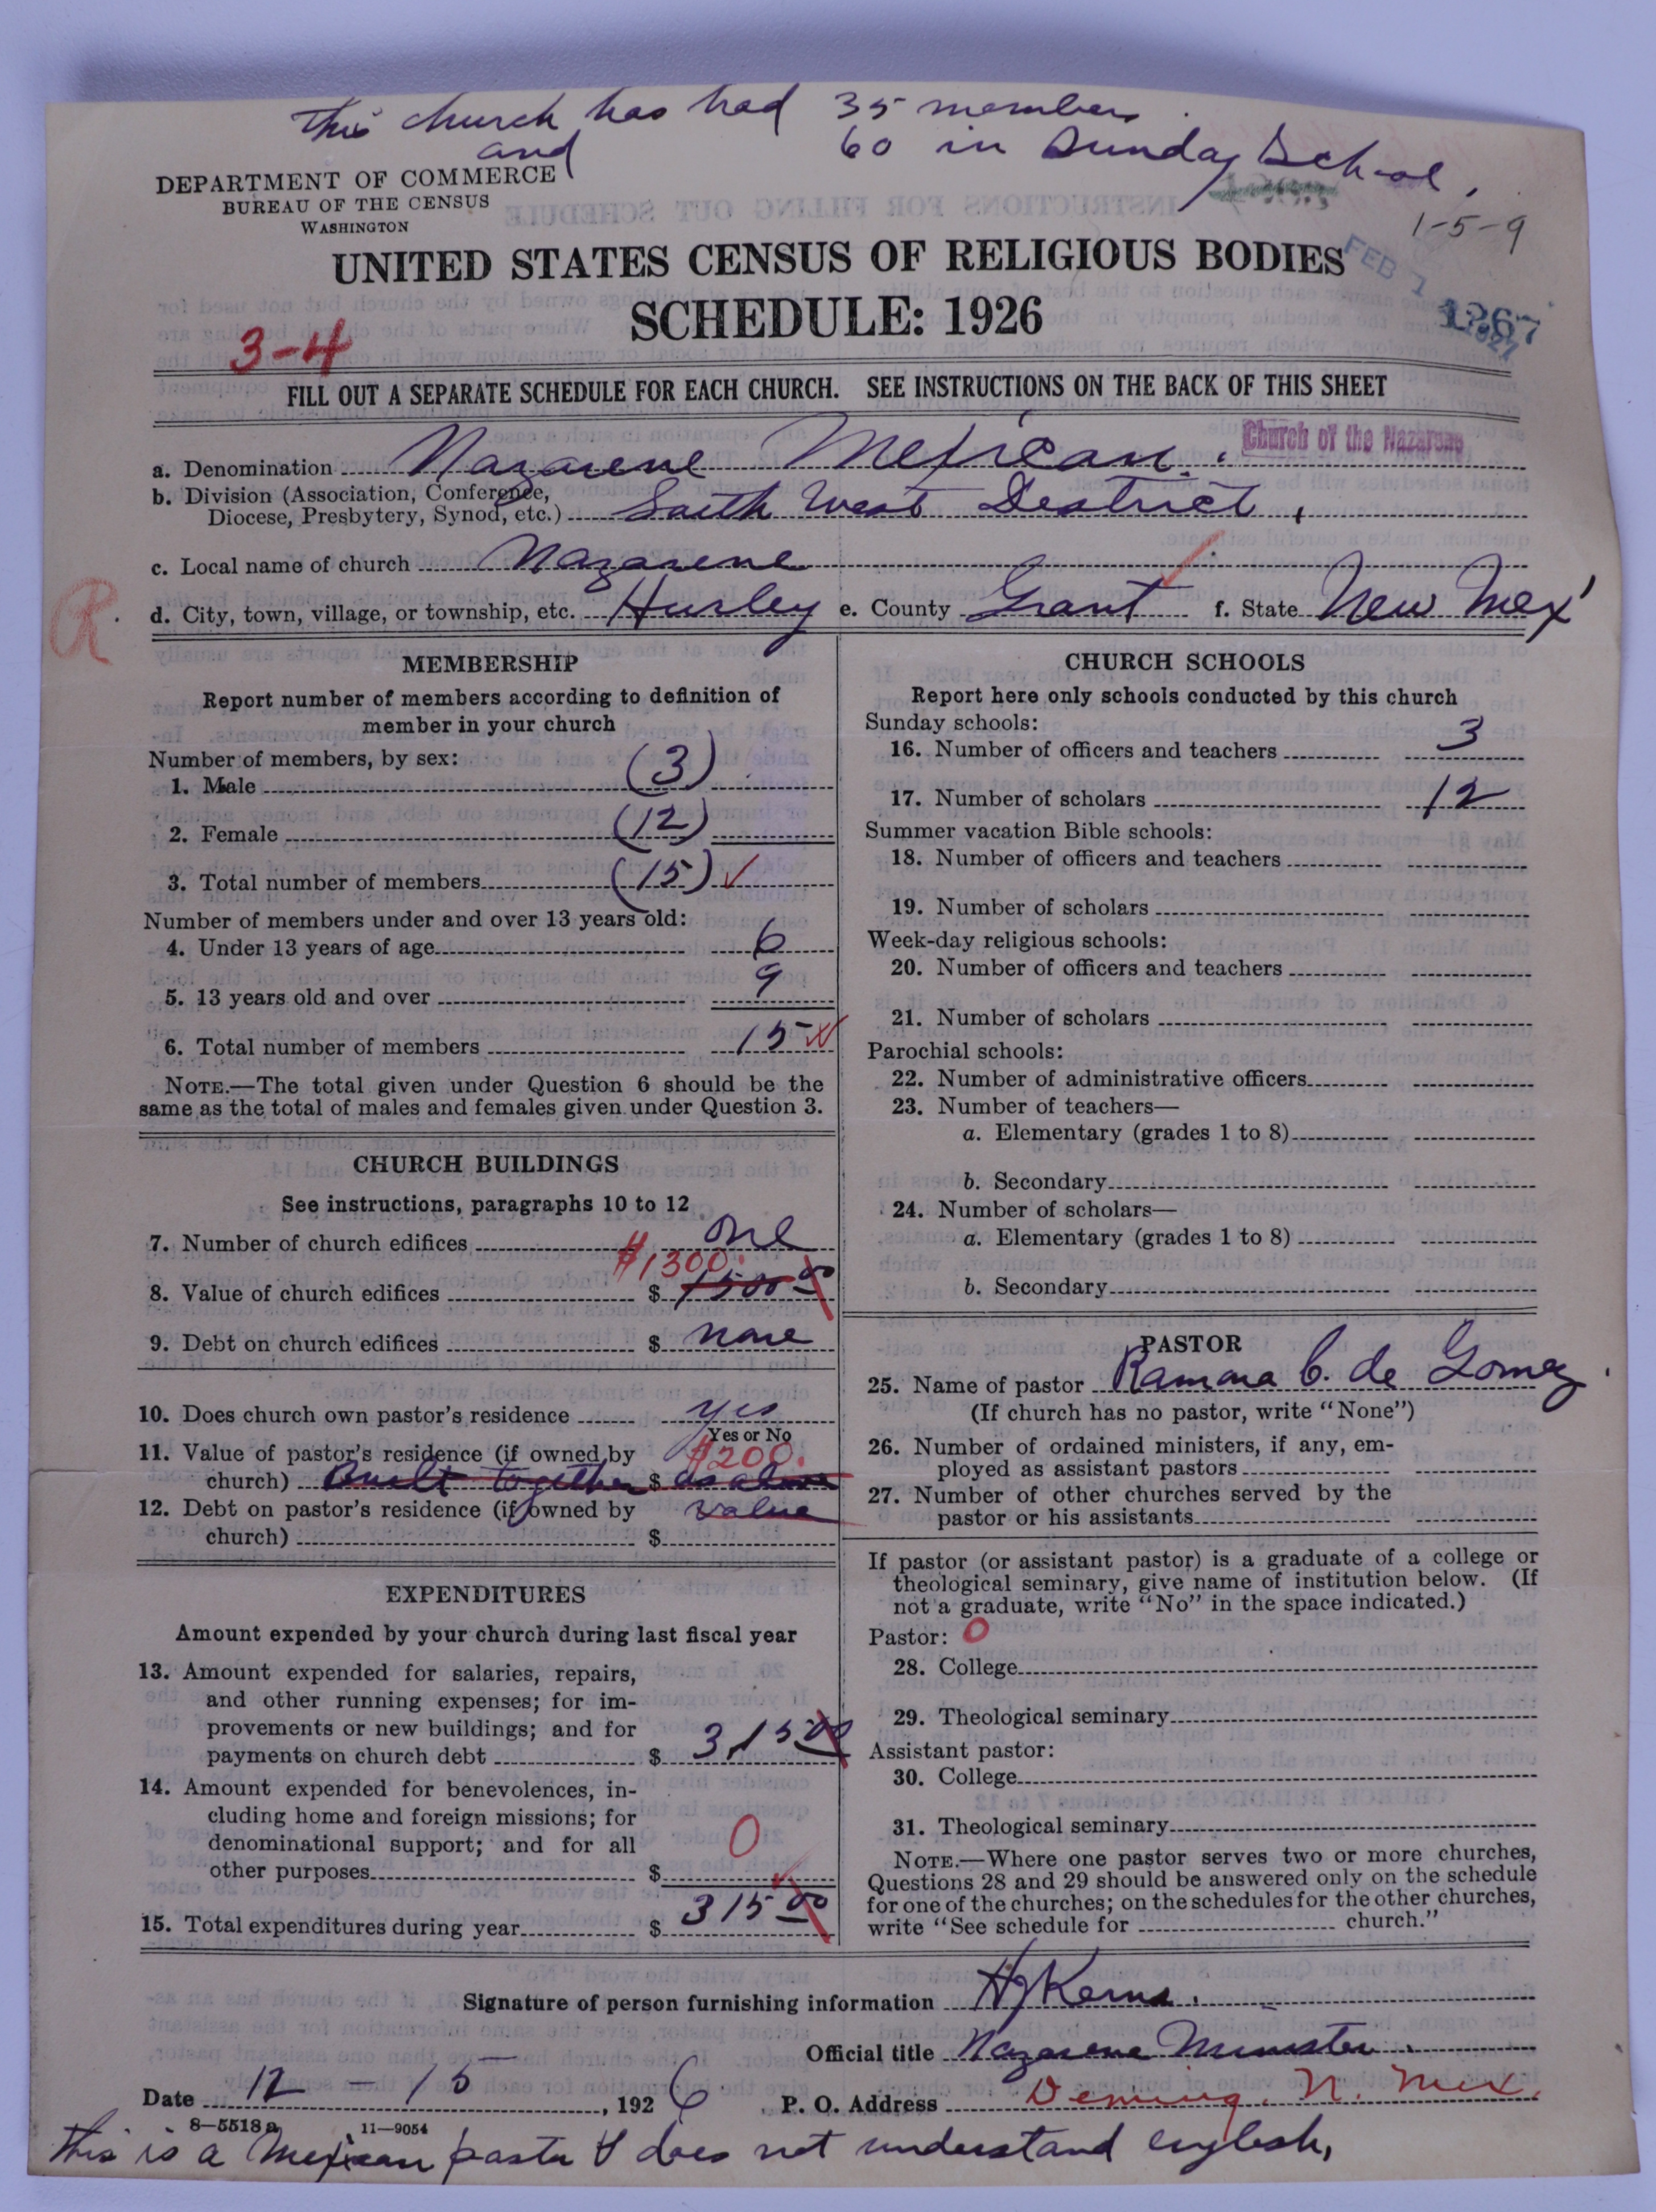 This church has had 35 members
and 60 in Sunday School.
DEPARTMENT OF COMMERCE
BUREAU OF THE CENSUS
WASHINGTON
1-5-9
UNITED STATES CENSUS OF RELIGIOUS BODIES
SCHEDULE: 1926
FEB 1 1927
1267
3-4
FILL OUT A SEPARATE SCHEDULE FOR EACH CHURCH. SEE INSTRUCTIONS ON THE BACK OF THIS SHEET
a. Denomination Nazarene Mexican. Church of the Nazarene
b. Division (Association, Conference,
Diocese, Presbytery, Synod, etc.) South West District.
c. Local name of church Nazarene
R
d. City, town, village, or township, etc. Hurley e. County Grant f. State New Mex
MEMBERSHIP
Report number of members according to definition of
member in your church
Number of members, by sex:
1. Male (3)
2. Female (12)
3. Total number of members (15)
Number of members under and over 13 years old:
4. Under 13 years of age 6
5. 13 years old and over 9
6. Total number of members 15
NOTE.—The total given under Question 6 should be the
same as the total of males and females given under Question 3.
CHURCH BUILDINGS
See instructions, paragraphs 10 to 12
7. Number of church edifices one
$1300.
8. Value of church edifices $ 1500 00
9. Debt on church edifices $ none
10. Does church own pastor's residence yes
Yes or No
11. Value of pastor's residence (if owned by $200.
church) Built together $ as above
12. Debt on pastor's residence (if owned by value
church) $
EXPENDITURES
Amount expended by your church during last fiscal year
13. Amount expended for salaries, repairs,
and other running expenses; for im-
provements or new buildings; and for
payments on church debt $ 315 00
14. Amount expended for benevolences, in-
cluding home and foreign missions; for
denominational support; and for all
other purposes $ 0
15. Total expenditures during year $ 315 00
CHURCH SCHOOLS
Report here only schools conducted by this church
Sunday schools:
16. Number of officers and teachers 3
17. Number of scholars 12
Summer vacation Bible schools:
18. Number of officers and teachers
19. Number of scholars
Week-day religious schools:
20. Number of officers and teachers
21. Number of scholars
Parochial schools:
22. Number of administrative officers
23. Number of teachers—
a. Elementary (grades 1 to 8)
b. Secondary
24. Number of scholars—
a. Elementary (grades 1 to 8)
b. Secondary
PASTOR
25. Name of pastor Ramona C. de Gomez
(If church has no pastor, write "None")
26. Number of ordained ministers, if any, em-
ployed as assistant pastors
27. Number of other churches served by the
pastor or his assistants
If pastor (or assistant pastor) is a graduate of a college or
theological seminary, give name of institution below. (If
not a graduate, write "No" in the space indicated.)
Pastor: 0
28. College
29. Theological seminary
Assistant pastor:
30. College
31. Theological seminary
NOTE.—Where one pastor serves two or more churches,
Questions 28 and 29 should be answered only on the schedule
for one of the churches; on the schedules for the other churches,
write "See schedule for church."
Signature of person furnishing information H J Kerns.
Official title Nazarene Minister.
Date 12-15, 1926 P. O. Address Deming, N. Mex.
8—5518a 11—9054
This is a Mexican pastor & does not understand english,